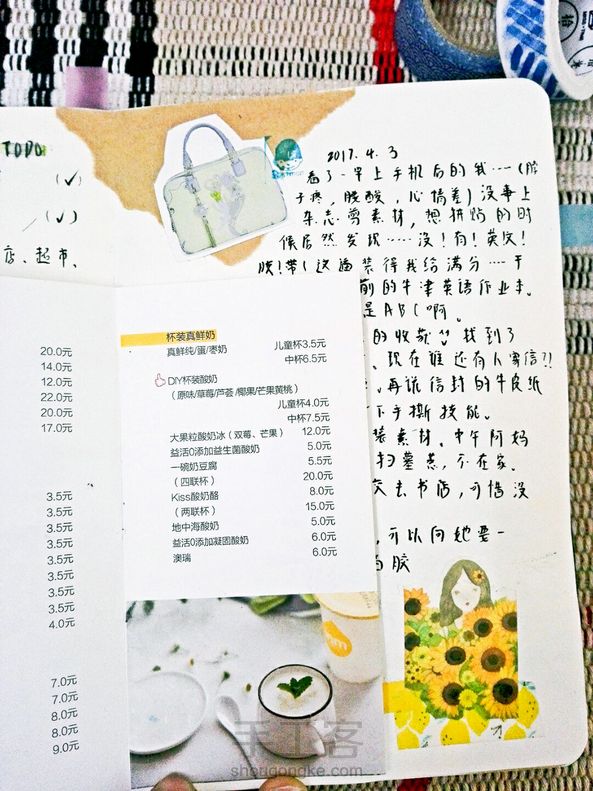 TODO
(✓)
(✓)
店、超市、
20.0元
14.0元
12.0元
22.0元
20.0元
17.0元
3.5元
3.5元
3.5元
3.5元
3.5元
3.5元
3.5元
4.0元
7.0元
7.0元
8.0元
8.0元
9.0元
杯装真鲜奶
真鲜纯/蛋/枣奶 儿童杯3.5元
中杯6.5元
DIY杯装酸奶
(原味/草莓/芦荟/椰果/芒果黄桃)
儿童杯4.0元
中杯7.5元
大果粒酸奶冰（双莓、芒果） 12.0元
益活0添加益生菌酸奶 5.0元
一碗奶豆腐 5.5元
（四联杯） 20.0元
Kiss酸奶酪 8.0元
（两联杯） 15.0元
地中海酸奶 5.0元
益活0添加凝固酸奶 6.0元
澳瑞 6.0元
2017.4.3
看了一早上手机后的我……(脖
子疼，腰酸，心情差)没事上
杂志剪素材，想拼贴的时
候居然发现……没!有!英文!
胶!带!这逼装得我给满分……于
前的牛津英语作业本。
是ABC啊。
的收藏 找到了
现在谁还有人寄信?!
。再说信封的牛皮纸
下手撕技能。
素材。中午阿妈
扫墓惹，不在家。
去书店，可惜没
可以向她要一
胶
手工客
shougongke.com